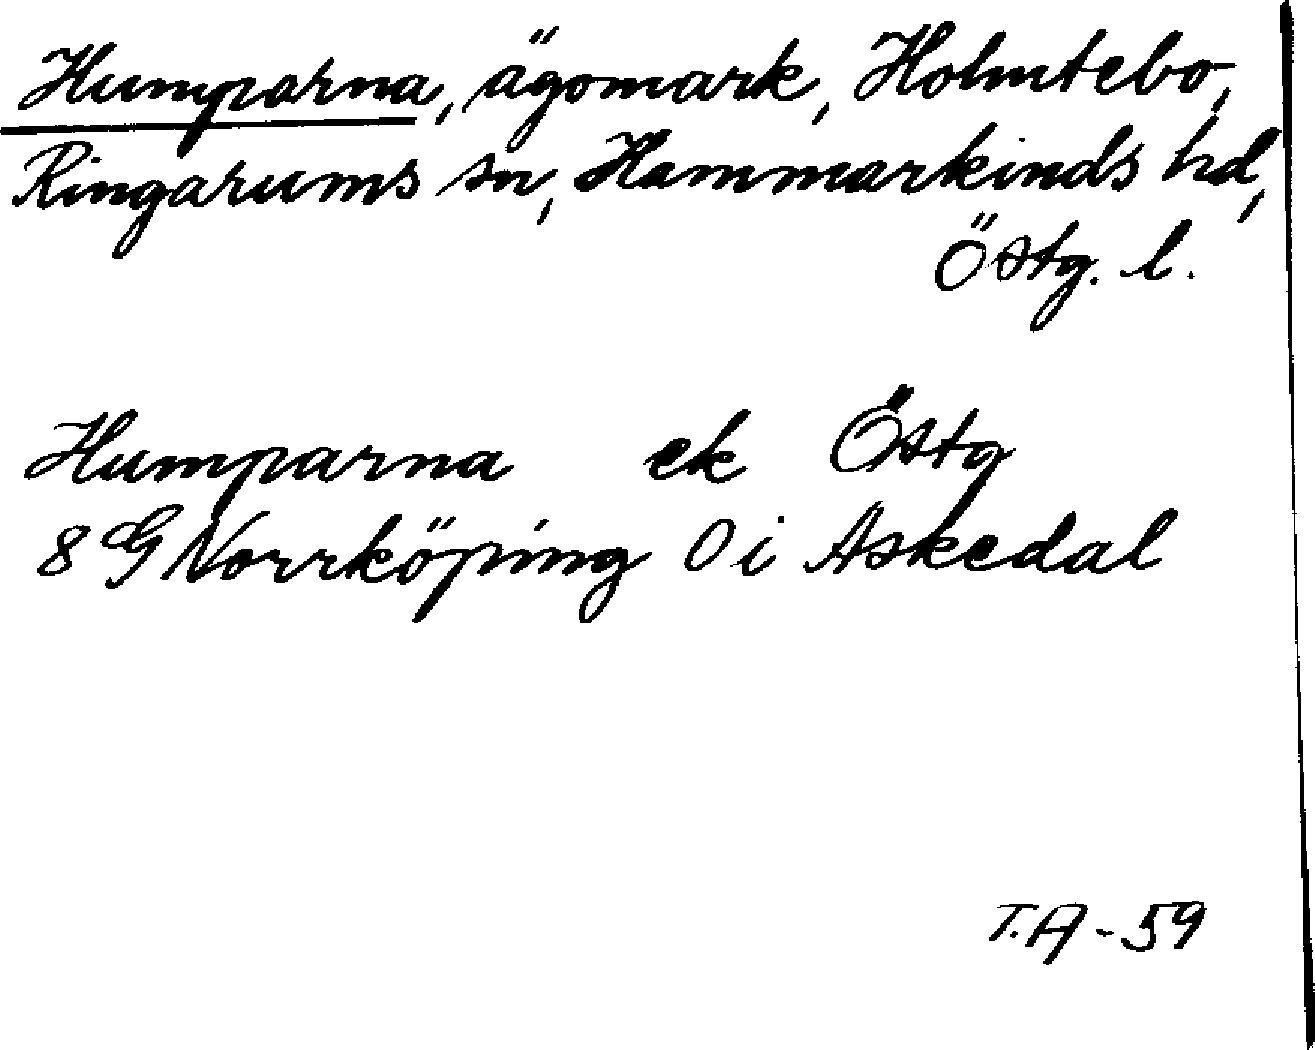 Humparna, ägomark, Holmtebo,
Ringarums sn, Hammarkinds hd,
Östg. l.
Humparna ek Östg
8 G Norrköping O i Askedal
T.A-59